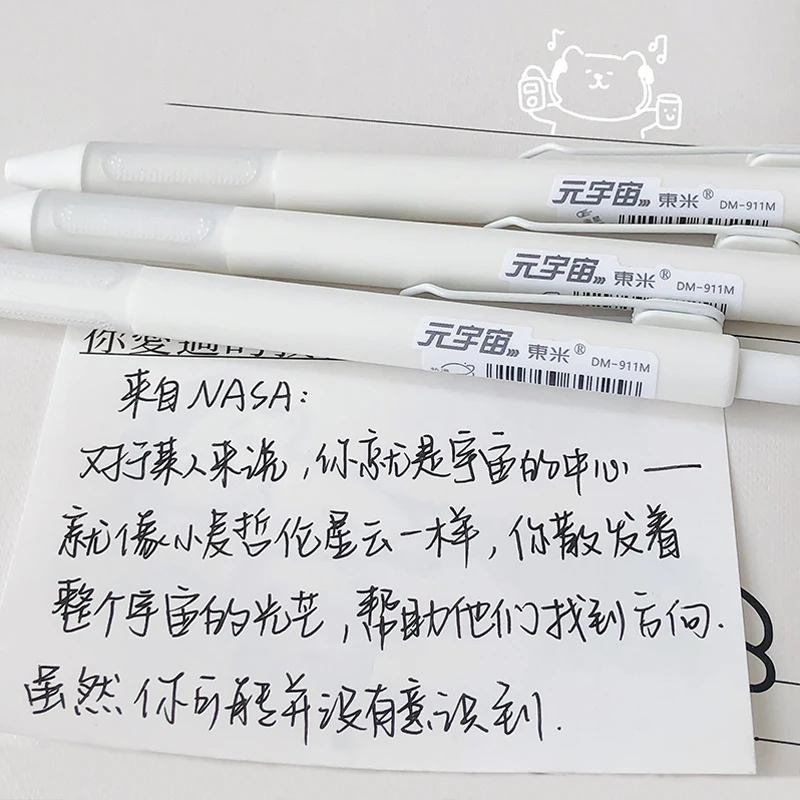 元宇宙 東米® DM-911M
元宇宙 東米® DM-911M
元宇宙 東米® DM-911M
来自NASA:
对于某人来说,你就是宇宙的中心——
就像小麦哲伦星云一样,你散发着
整个宇宙的光芒,帮助他们找到方向.
虽然你可能并没有意识到.